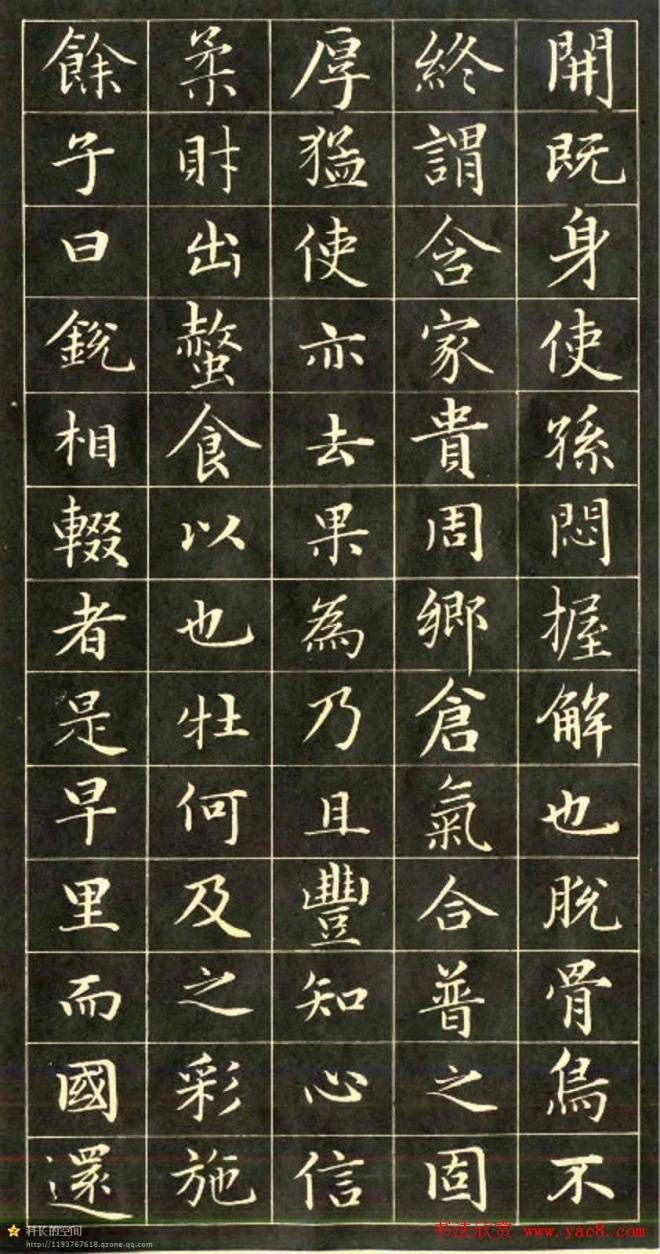 開既身使孫悶握解也脫骨鳥不
終謂含家貴周鄉倉氣合普之固
厚猛使亦去果為乃且豐知心信
柔財出螫食以也牡何及之彩施
餘子曰銳相輟者是早里而國還
科长的空间
http://1193767618.qzone.qq.com
书法欣赏 www.yac8.com